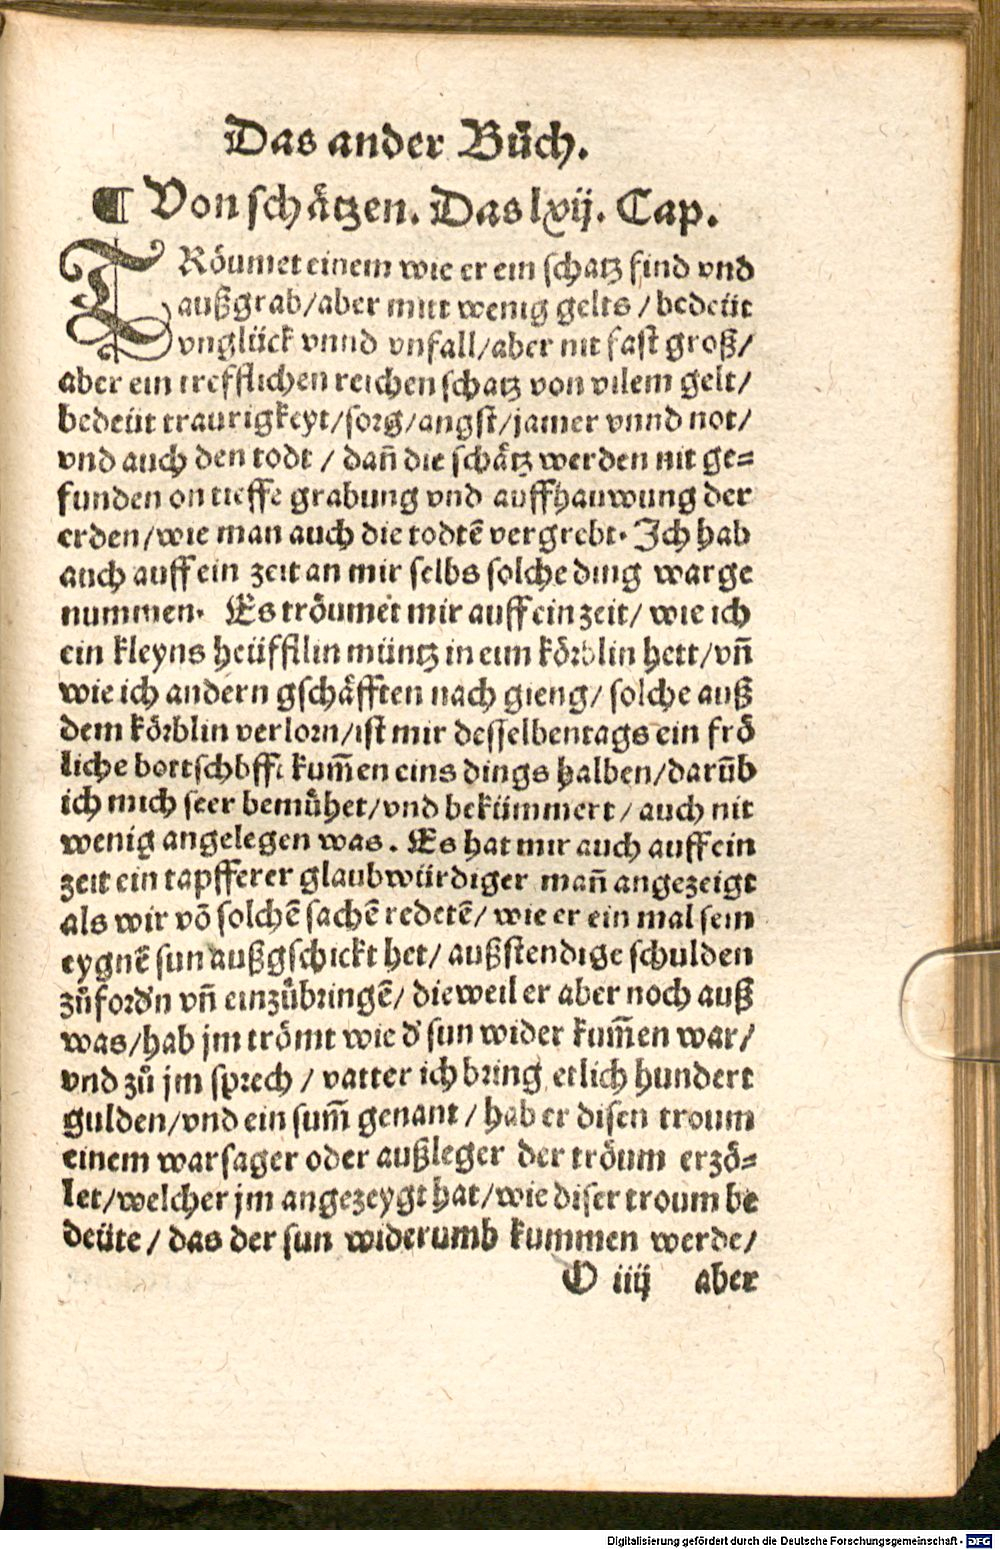 Das ander Bůch.
¶ Von schätzen. Das lxij. Cap.
TRöumet einem wie er ein schatz find vnd
außgrab/aber mitt wenig gelts / bedeüt
vnglück vnnd vnfall/aber nit fast groß/
aber ein trefflichen reichen schatz von vilem gelt/
bedeüt traurigkeyt/sorg/angst/jamer vnnd not/
vnd auch den todt / dañ die schätz werden nit ge=
funden on tieffe grabung vnd auffhauwung der
erden/wie man auch die todtē vergrebt. Ich hab
auch auff ein zeit an mir selbs solche ding warge
nummen. Es tröumet mir auff ein zeit/ wie ich
ein kleyns heüffilin müntz in eim körblin hett/vñ
wie ich andern gschäfften nach gieng/ solche auß
dem körblin verlorn/ist mir desselben tags ein frö
liche bottschbfft kum̃en eins dings halben/darūb
ich mich seer bemühet/vnd bekümmert / auch nit
wenig angelegen was. Es hat mir auch auff ein
zeit ein tapfferer glaubwürdiger mañ angezeigt
als wir vō solchē sachē redetē/ wie er ein mal sein
eygnē sun außgschickt het/ außstendige schulden
zůford'n vñ einzůbringē/ dieweil er aber noch auß
was/hab jm trömt wie d' sun wider kum̃en war/
vnd zů jm sprech / vatter ich bring etlich hundert
gulden/vnd ein sum̃ genant / hab er disen troum
einem warsager oder außleger der tröum erzö=
let/welcher jm angezeygt hat/wie diser troum be
deüte / das der sun widerumb kummen werde/
O iiij aber
Digitalisierung gefördert durch die Deutsche Forschungsgemeinschaft - DFG